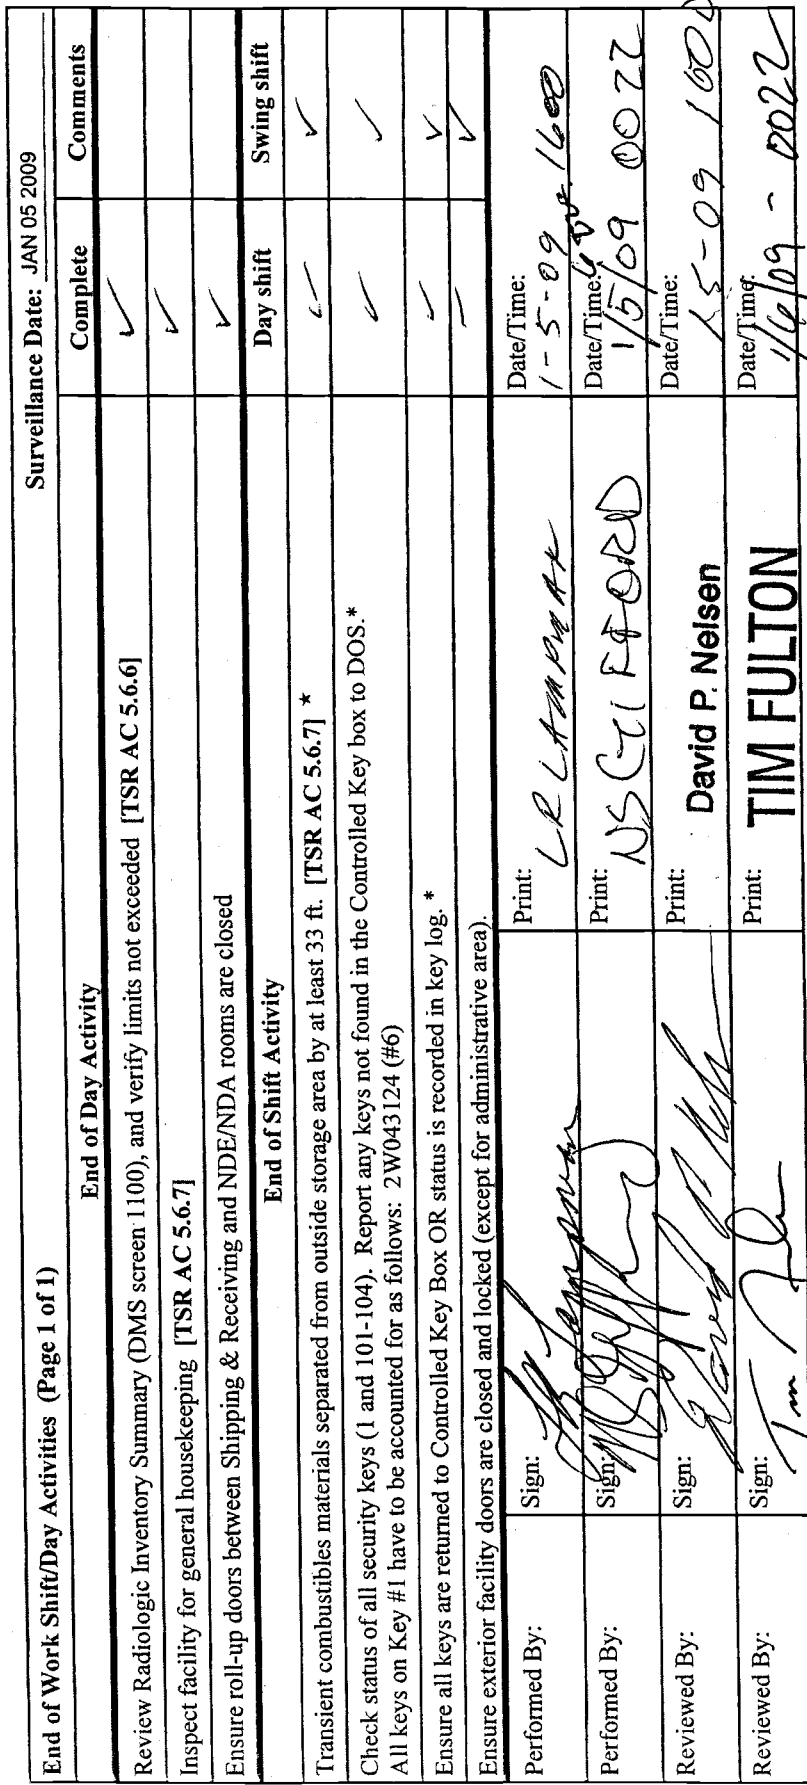 End of Work Shift/Day Activities (Page 1 of 1) Surveillance Date: JAN 05 2009
End of Day Activity Complete Comments
Review Radiologic Inventory Summary (DMS screen 1100), and verify limits not exceeded [TSR AC 5.6.6] ✓
Inspect facility for general housekeeping [TSR AC 5.6.7] ✓
Ensure roll-up doors between Shipping & Receiving and NDE/NDA rooms are closed ✓
End of Shift Activity Day shift Swing shift
Transient combustibles materials separated from outside storage area by at least 33 ft. [TSR AC 5.6.7] * ✓ ✓
Check status of all security keys (1 and 101-104). Report any keys not found in the Controlled Key box to DOS.* ✓ ✓
All keys on Key #1 have to be accounted for as follows: 2W043124 (#6)
Ensure all keys are returned to Controlled Key Box OR status is recorded in key log. * ✓ ✓
Ensure exterior facility doors are closed and locked (except for administrative area). ✓ ✓
Performed By: Sign: Print: LR Date/Time: 1-5-09 1600
Performed By: Sign: Print: NS Date/Time: 1/5/09 0022
Reviewed By: Sign: Print: David P. Nelsen Date/Time: 1-5-09 1600
Reviewed By: Sign: Tim Print: TIM FULTON Date/Time: 1/6/09 - 0022